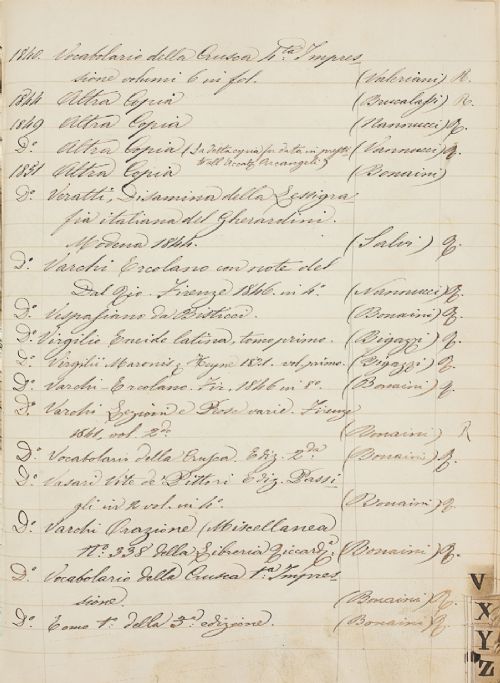 1840. Vocabolario della Crusca 4ta Impres
sione volumi 6 in fol. (Valeriani) R.
1844 Altra Copia (Brucalassi) R.
1849 Altra Copia (Nannucci) R.
Do Altra Copia (La detta copia fu data in (Nannucci) R.
all'Accad. Arcangeli)
1851 Altra Copia (Bonaini)
Do Veratti, Disamina della Lessigra
fia italiana del Gherardini.
Modena 1844. (Salvi) R.
Do Varchi Ercolano con note del
Dal Rio. Firenze 1846. in 4o. (Nannucci) R.
Do Vespasiano da Bisticci. (Bonaini) R.
Do Virgilio Eneide latina, tomo primo. (Bigazzi) R.
Do Virgilii Maronis Heyne vol. primo. (Bigazzi) R.
Do Varchi Ercolano. Fir. 1846 in 8o. (Bonaini) R.
Do Varchi Lezioni e Prose varie. Firenze
1841. vol. 2do (Bonaini) R
Do Vocabolario della Crusca. Ediz. 2da (Bonaini) R.
Do Vasari Vite de' Pittori Ediz. Passi
gli in vol. in 4o. (Bonaini) R.
Do Varchi Orazione (Miscellanea
No. 338 della Libreria Riccardi. (Bonaini) R.
Do Vocabolario della Crusca 1a. Impres
sione. (Bonaini) R.
Do Tomo 1o. della 3a edizione. (Bonaini) R.
V
X
Y
Z